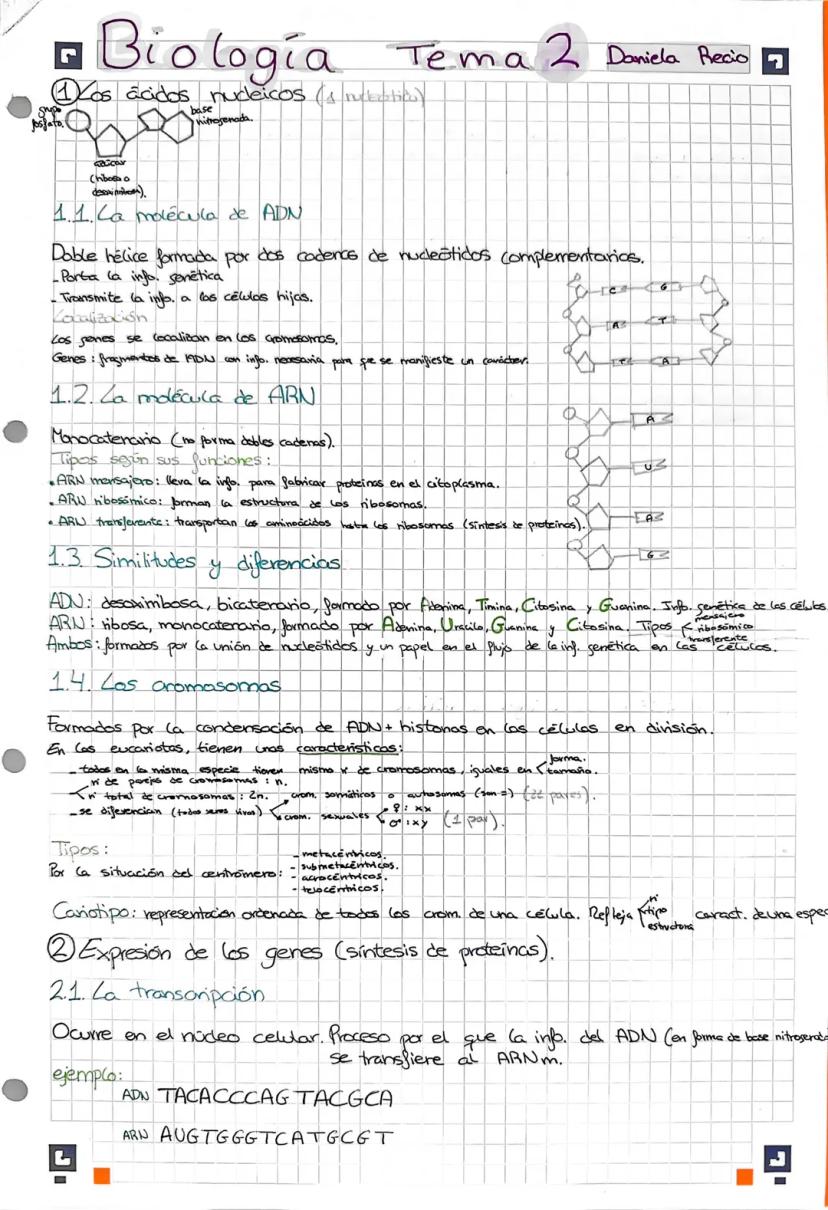 Biología Tema 2 Daniela Recio
① Los ácidos nucleicos (1 nucleótido)
grupo fosfato.
base nitrogenada.
azúcar
(ribosa o
desoxirribosa).
1.1. La molécula de ADN
Doble hélice formada por dos cadenas de nucleótidos complementarios.
- Porta la info. genética
- Transmite la info. a las células hijas.
Localización
Los genes se localizan en los cromosomas.
Genes: fragmentos de ADN con info. necesaria para que se manifieste un carácter.
C G
A T
T A
1.2. La molécula de ARN
Monocatenario (no forma dobles cadenas).
Tipos según sus funciones:
• ARN mensajero: lleva la info. para fabricar proteínas en el citoplasma.
• ARN ribosómico: forman la estructura de los ribosomas.
• ARN transferente: transportan los aminoácidos hasta los ribosomas (síntesis de proteínas).
A
U
A
G
1.3. Similitudes y diferencias
ADN: desoxirribosa, bicatenario, formado por Adenina, Timina, Citosina y Guanina. Info. genética de las células
ARN: ribosa, monocatenario, formado por Adenina, Uracilo, Guanina y Citosina. Tipos mensajero ribosómico transferente
Ambos: formados por la unión de nucleótidos y un papel en el flujo de la inf. genética en las células.
1.4. Los cromosomas
Formados por la condensación de ADN + histonas en las células en división.
En las eucariotas, tienen unas características:
- todos en la misma especie tienen mismo nº de cromosomas, iguales en forma. tamaño.
nº de parejas de cromosomas: n.
nº total de cromosomas: 2n.
- se diferencian (todos seres vivos) crom. somáticos o autosomas (son =) (22 pares).
crom. sexuales ♀: xx ♂: xy (1 par).
Tipos:
Por la situación del centrómero:
- metacéntricos.
- submetacéntricos.
- acrocéntricos.
- telocéntricos.
Cariotipo: representación ordenada de todos los crom. de una célula. Refleja nº tipo estructura caract. de una espec
② Expresión de los genes (síntesis de proteínas).
2.1. La transcripción
Ocurre en el núcleo celular. Proceso por el que la info. del ADN (en forma de base nitrogenada
se transfiere al ARNm.
ejemplo:
ADN TACACCCAGTACGCA
ARN AUGTGGGTCATGCGT